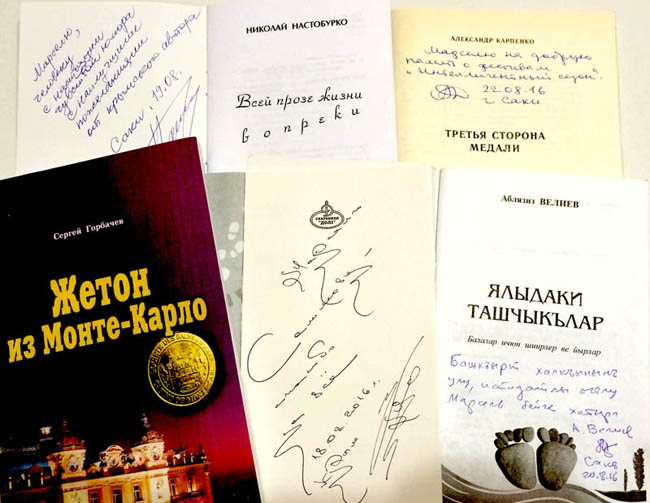 Марселю,
человеку
с настоящим
чувством юмора
с наилучшими
пожеланиями
от крымского автора
Саки, 19.08.
НИКОЛАЙ НАСТОБУРКО
Всей прозе жизни
вопреки
АЛЕКСАНДР КАРПЕНКО
Марселю на добрую
память о фестивале
"Интеллигентный сезон".
22.08.16
г. Саки
ТРЕТЬЯ СТОРОНА
МЕДАЛИ
Сергей Горбачев
Жетон
из Монте-Карло
"ДОЛГ"
за всё
18.08.2016 г.
Аблязиз ВЕЛИЕВ
ЯЛЫДАКИ
ТАШЧЫКЪЛАР
Балалар ичюн шиирлер ве йырлар
Башкъырт халкъынынъ
улу, истидатлы огълу
Марсель бейге хатыра
А. Велиев
Саки
20.8.16